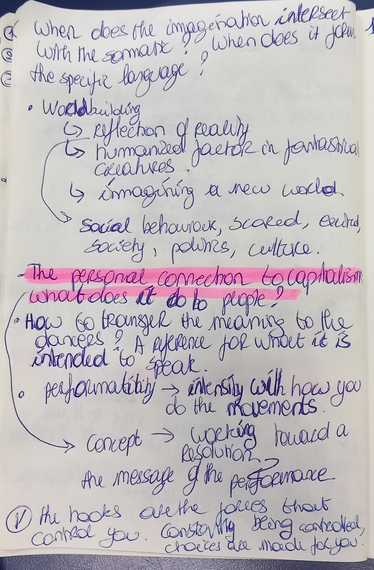 When does the imagination intersect
with the somatic? When does it form
the specific language?
• Worldbuilding
↳ reflection of reality
↳ humanized factor in fantastical
creatures.
↳ imagining a new world.
Social behaviour, scared, excited,
society, politics, culture.
- The personal connection to capitalism
what does it do to people?
• How to transfer the meaning to the
dancers? A reference for what it is
intended to speak.
• performability → intensity with how you
do the movements.
Concept → working toward a
Resolution?
the message of the performance
V The hooks are the forces that
control you. Constantly being controlled,
choices are made for you.